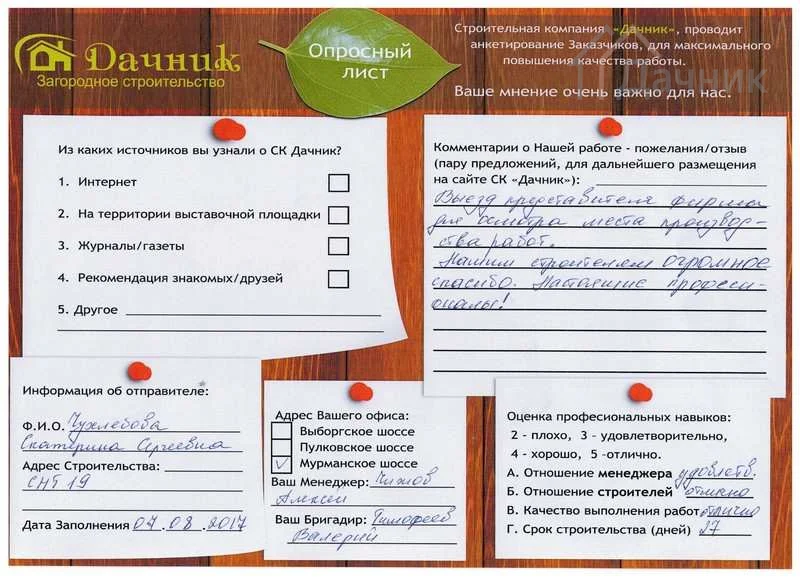 Дачник
Загородное строительство
Опросный
лист
Строительная компания «Дачник», проводит
анкетирование Заказчиков, для максимального
повышения качества работы.
Ваше мнение очень важно для нас.
Дачник
Из каких источников вы узнали о СК Дачник?
1. Интернет
2. На территории выставочной площадки
3. Журналы/газеты
4. Рекомендация знакомых/друзей
5. Другое
Комментарии о Нашей работе - пожелания/отзыв
(пару предложений, для дальнейшего размещения
на сайте СК «Дачник»):
Выезд представителя фирмы
для осмотра места производ-
ства работ.
Нашим строителям огромное
спасибо. Настоящие професси-
оналы!
Информация об отправителе:
Ф.И.О. Чухлебова
Екатерина Сергеевна
Адрес Строительства:
СНТ 19
Дата Заполнения 07.08.2017
Адрес Вашего офиса:
Выборгское шоссе
Пулковское шоссе
Мурманское шоссе
Ваш Менеджер: Чижов
Алексей
Ваш Бригадир: Тимофеев
Валерий
Оценка профессиональных навыков:
2 - плохо, 3 - удовлетворительно,
4 - хорошо, 5 -отлично.
А. Отношение менеджера удовлетв.
Б. Отношение строителей отлично
В. Качество выполнения работ отлично
Г. Срок строительства (дней) 27